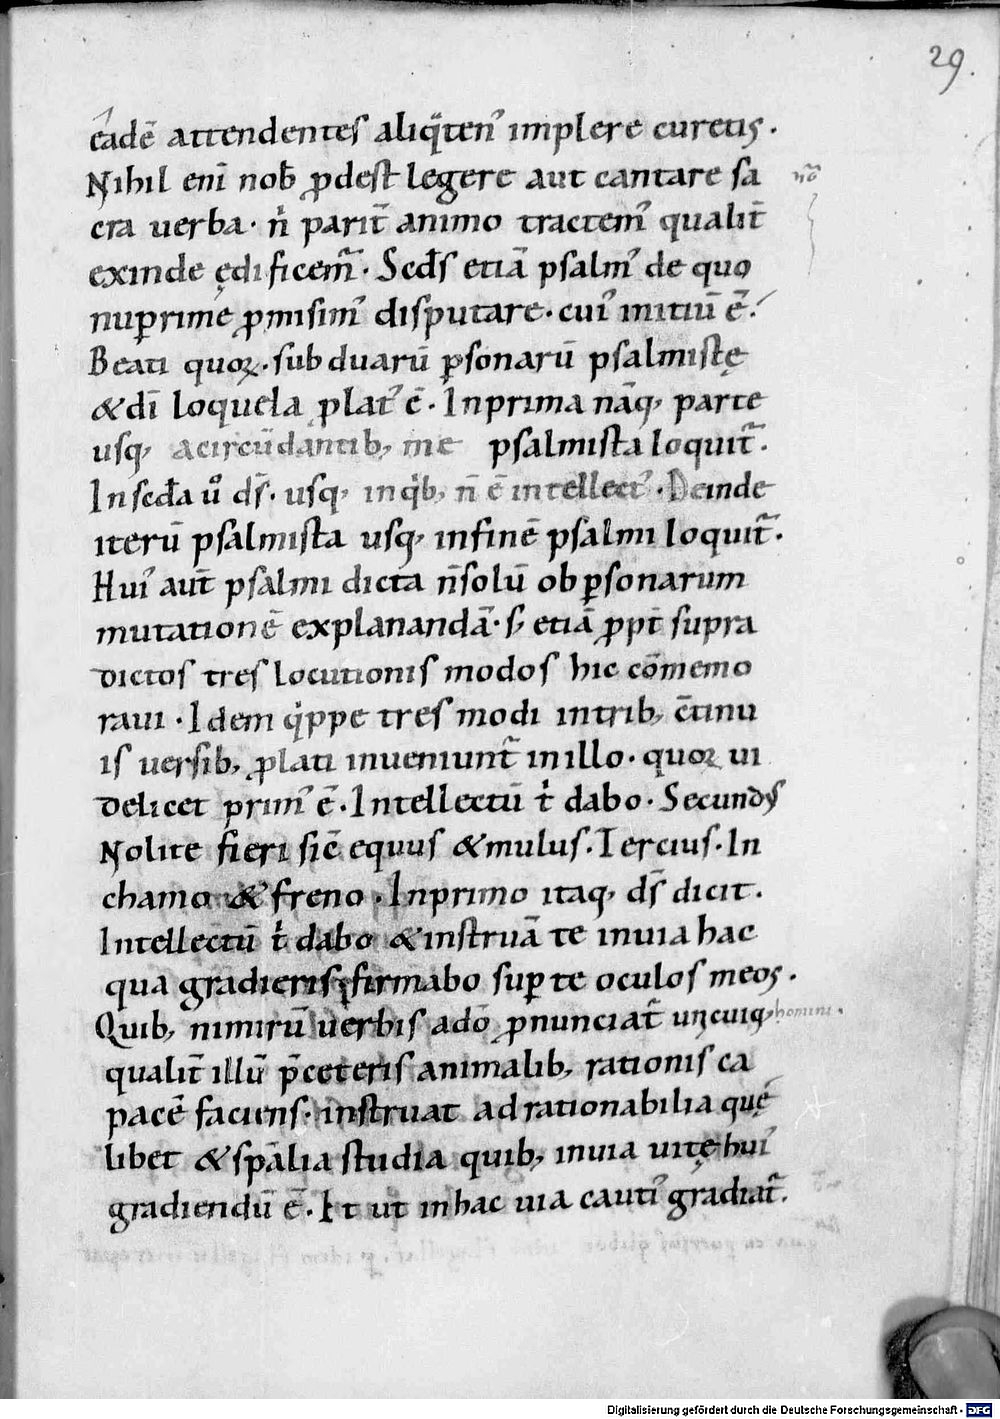 29.
eadē attendentes aliq̄ten' implere curetis.
Nihil eni nob̄ p̄dest legere aut cantare sa
cra uerba. n̄ parit̄ animo tractem' qualit̄
exinde ędificem̄. Scd̄s etiā psalm' de quo
nuꝑrime ꝓmisim' disputare. cui' initiū ē.
Beati quoꝝ. sub duarū ꝑsonarū psalmistę
& dī loquela ꝓlat' ē. In prima nāq; parte
usq; a circūdantib; me psalmista loquit̄.
In scd̄a ů ds̄. usq; in qͥb; n̄ ē intellect'. Deinde
iterū psalmista usq; in finē psalmi loquit̄.
Hui' aut̄ psalmi dicta n̄ solū ob ꝑsonarum
mutationē explanandā. s; etiā ꝓpt̄ supra
dictos tres locutionis modos hic cōmemo
raui. Idem qͥppe tres modi in trib; c̄tinu
is uersib; ꝓlati inueniunt̄ in illo. quoꝝ ui
delicet prim' ē. Intellectū t̄ dabo. Secund's
Nolite fieri sic̄ equus & mulus. Tercius. In
chamo & freno. In primo itaq; ds̄ dicit.
Intellectū t̄ dabo & instruā te in uia hac
qua gradieris; firmabo suꝑ te oculos meos.
Quib; nimirū uerbis a dō ꝓnunciat̄ unicuiq; homini.
qualit̄ illū p̄ ceteris animalib; rationis ca
pacē faciens. instruat ad rationabilia quę
libet & spālia studia quib; in uia uitę hui'
gradiendū ē. Et ut in hac uia cauti' gradiat̄.
Digitalisierung gefördert durch die Deutsche Forschungsgemeinschaft - DFG